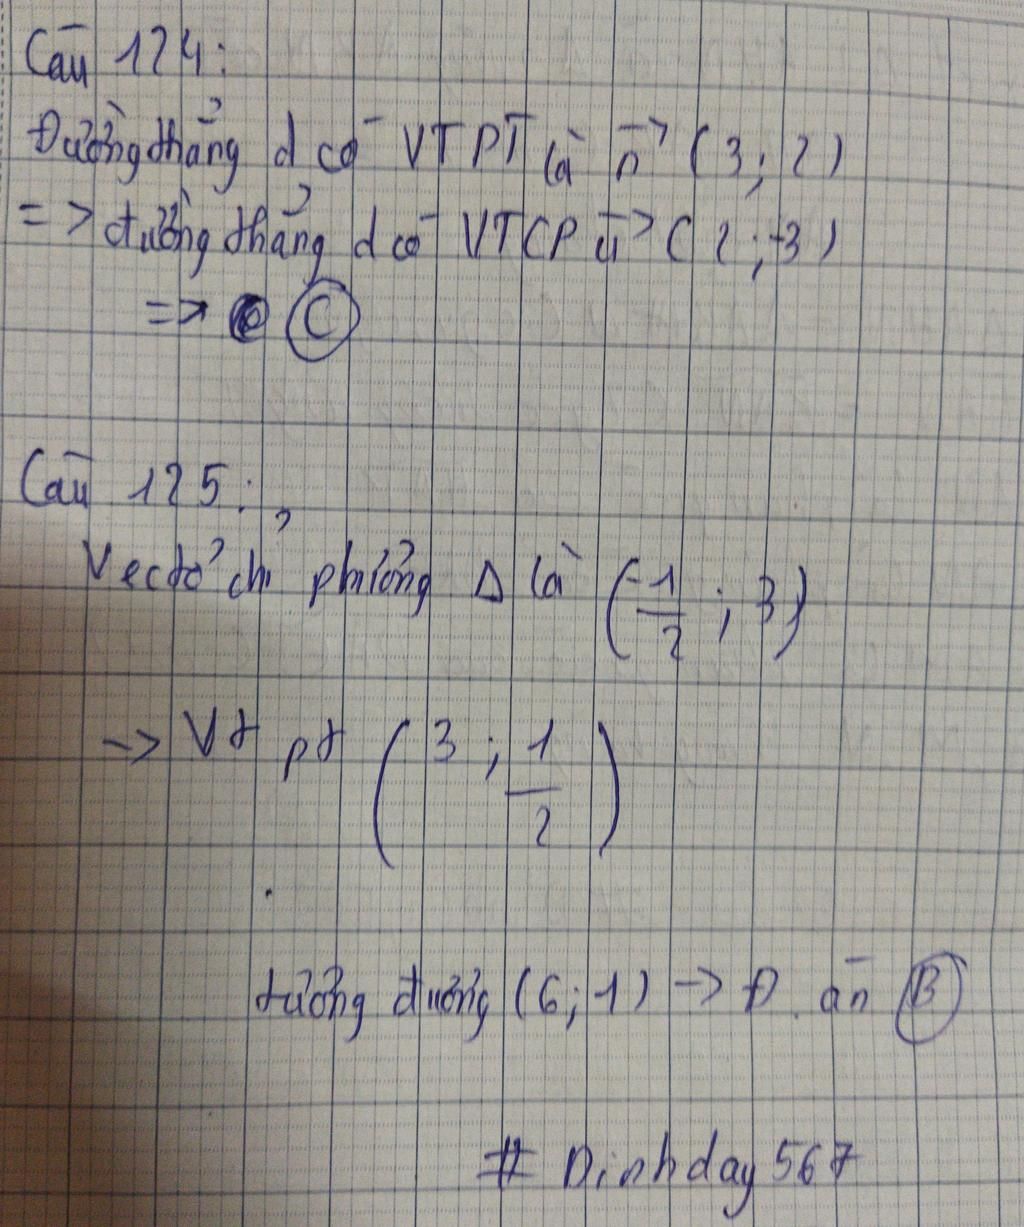 Câu 124:
Đường thẳng d có VTPT là n→ (3; 2)
=> đường thẳng d có VTCP u→ (2; -3)
=> C
Câu 125:
Vectơ chỉ phương Δ là (-1/2; 3)
-> Vt pt (3; 1/2)
tương đương (6; 1) -> Đ. án B
# Dinhday567